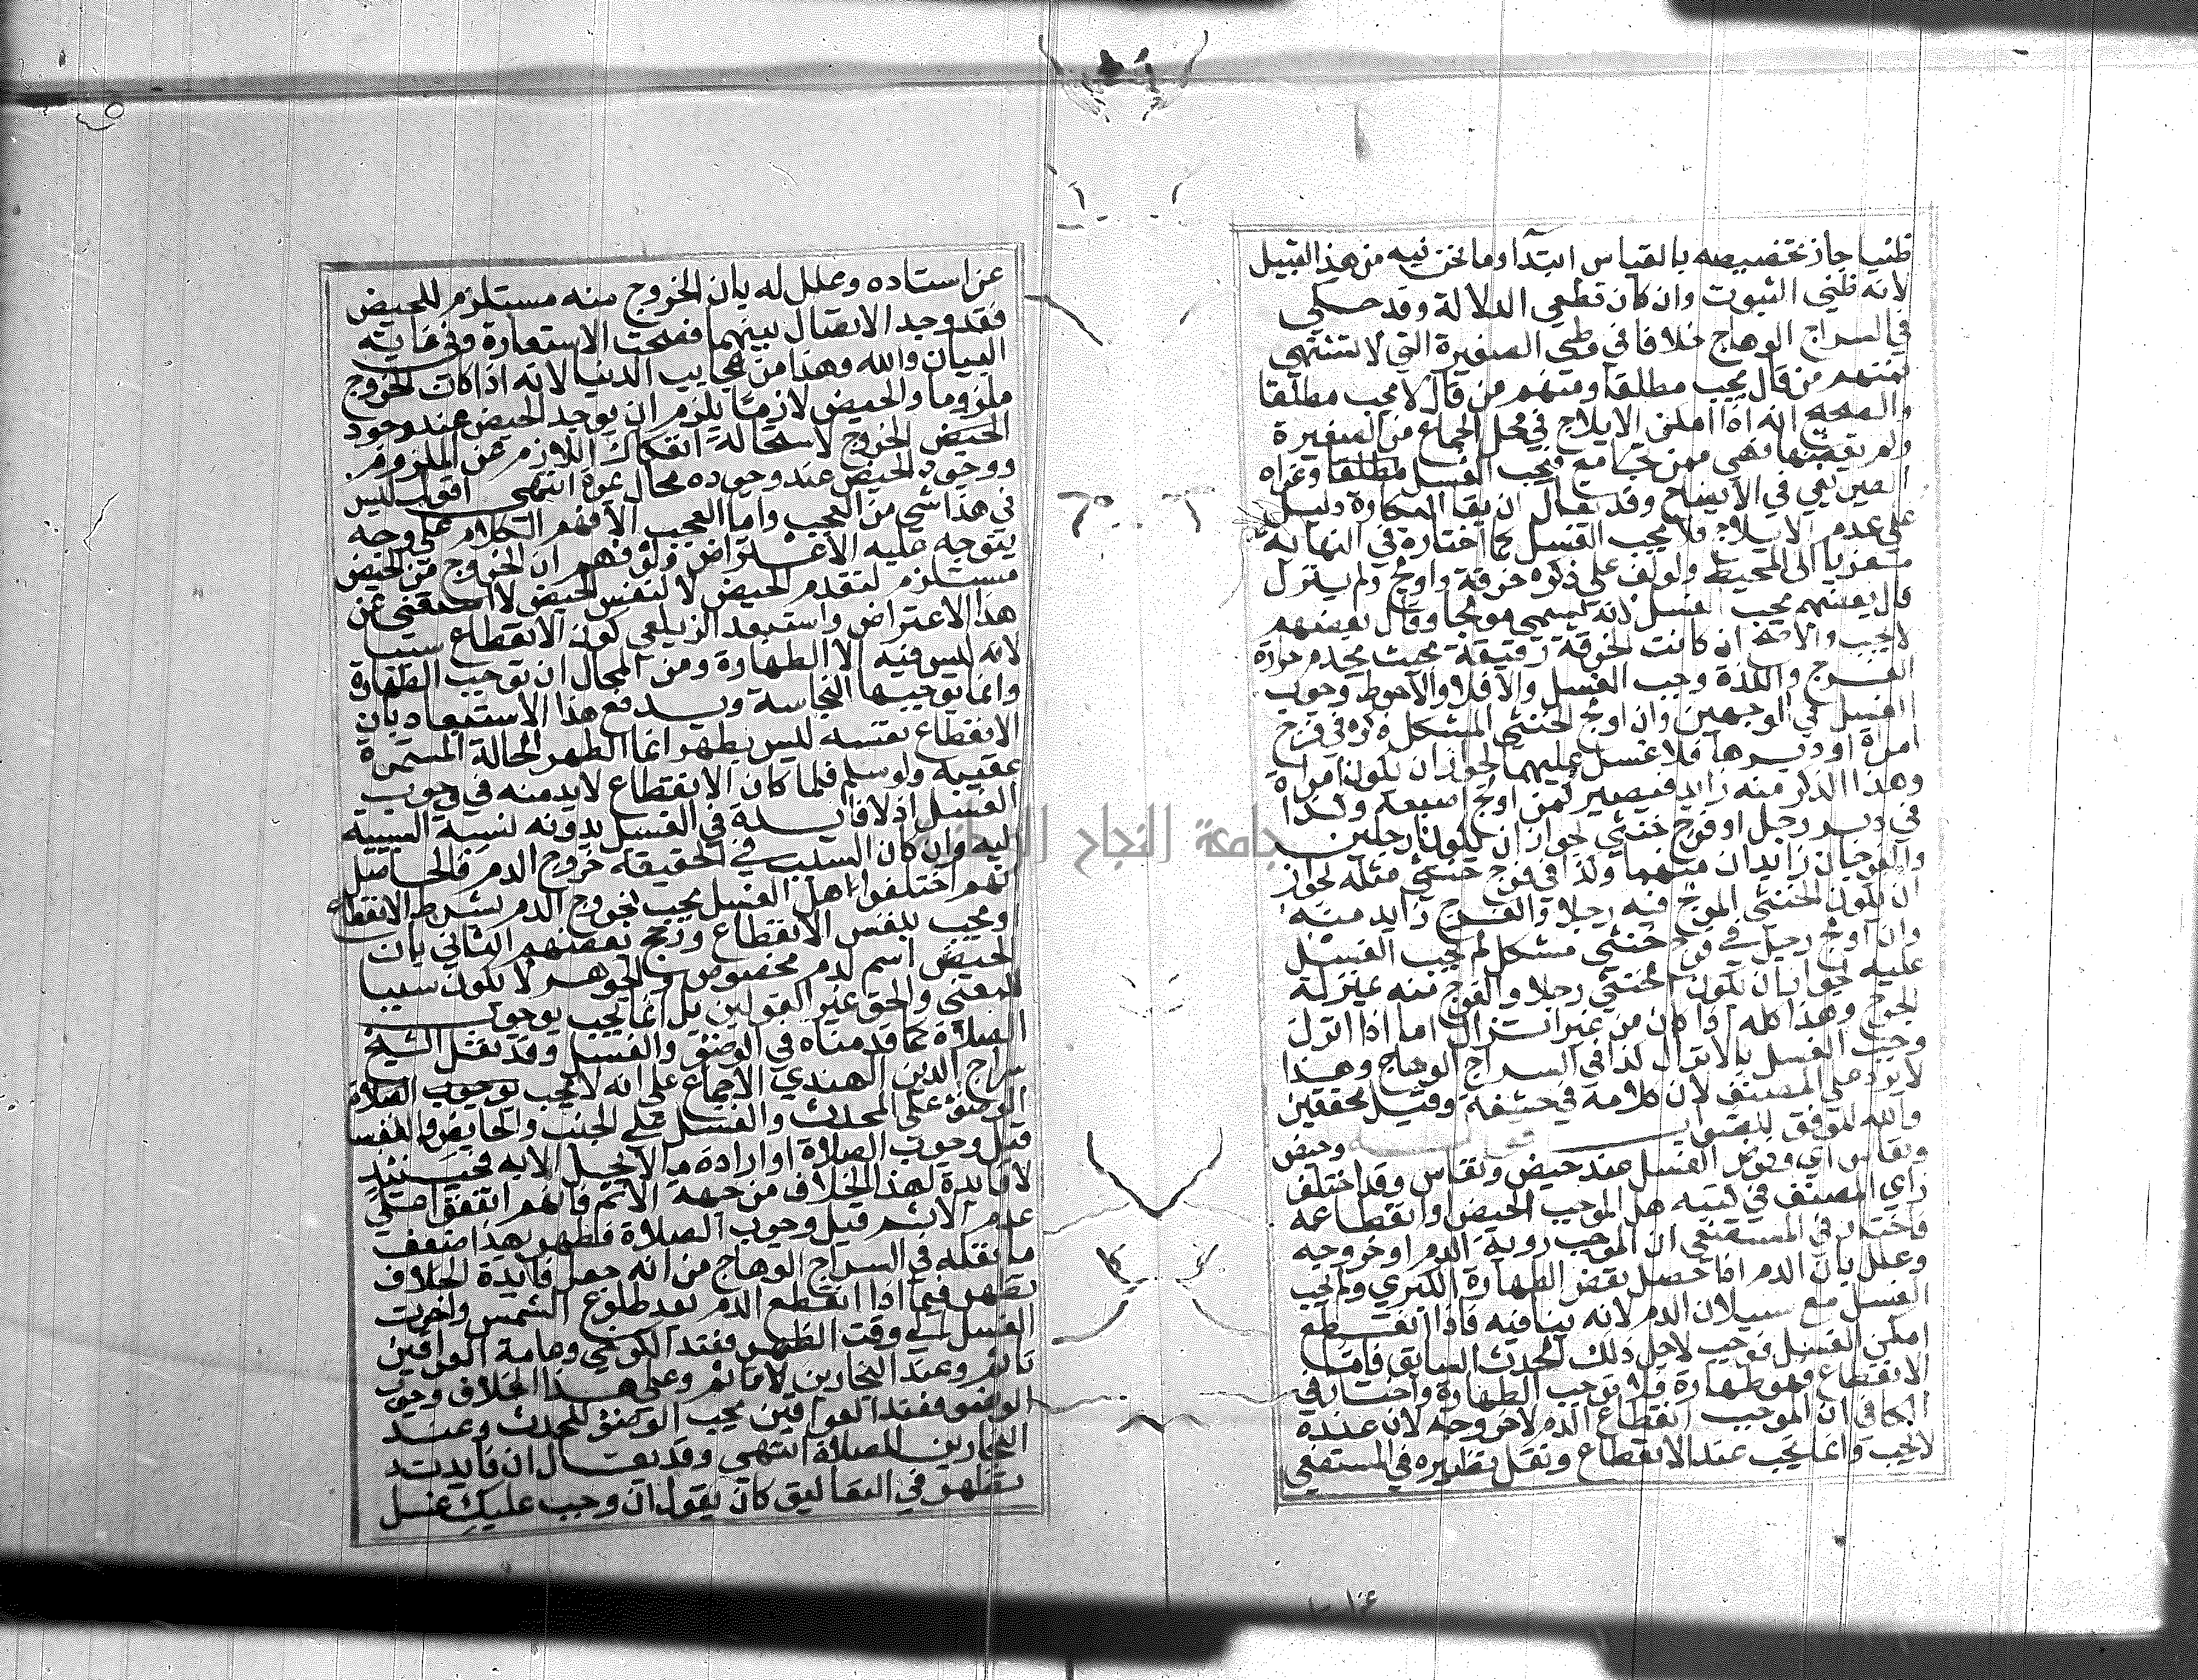 ظنيا جاز تخصيصه بالقياس ابتدآ وما نحن فيه من هذا القبيل
لانه ظني الثبوت وان كان قطعي الدلالة وقد حكي
في السراج الوهاج خلافا في وطي الصغيرة التي لا تشتهي
فمنهم من قال يجب مطلقا ومنهم من قال لا يجب مطلقا
والصحيح انه اذا امكن الايلاج في محل الجماع من الصغيرة
ولم يفضها فهي ممن تجامع فيجب الغسل مطلقا وعزاه
الصيرفي في الايضاح وقد يقال ان بقا البكارة دليل
على عدم الايلاج فلا يجب الغسل كما اختاره في النهاية
معزيا الى المحيط ولو لف على ذكره خرقة واولج ولم ينزل
قال بعضهم يجب الغسل لانه يسمى مولجا وقال بعضهم
لا يجب والاصح ان كانت الخرقة رقيقة بحيث يجد حرارة
الفرج واللذة وجب الغسل والا فلا والاحوط وجوب
الغسل في الوجهين وان اولج الخنثى المشكل ذكره في فرج
امراة او دبرها فلا غسل عليهما لجواز ان يكون امراة
وهذا الذكر منه زايد فيصير كمن اولج اصبعه وكذا
في دبر رجل او فرج خنثي لجواز ان يكونا رجلين
والفرجان زايدان منهما وكذا في فرج خنثي مثله لجواز
ان يكون الخنثي المولج فيه رجلا والفرج زايد منه
وان اولج رجل في فرج خنثي مشكل لم يجب الغسل
عليه لجواز ان يكون الخنثي رجلا والفرج منه بمنزلة
الجرح وهذا كله اذا كان من غير انزال اما اذا انزل
وجب الغسل بالانزال كذا في السراج الوهاج وهذا
لا يرد على المصنف لان كلامه في حشفة وقبل محققين
والله الموفق للصواب وحيض
ونفاس اي وفرض الغسل عند حيض ونفاس وقد اختلف
راي المصنف في كتبه هل الموجب الحيض وانقطاعه
فاختار في المستصفي ان الموجب روية الدم او خروجه
وعلل بان الدم اذا حصل نقض الطهارة الكبري ولم يجب
الغسل مع سيلان الدم لانه ينافيه فاذا انقطع
امكن الغسل فوجب لاجل ذلك الحدث السابق فاما
الانقطاع فهو طهارة فلا يوجب الطهارة واختار في
الكافي ان الموجب انقطاع الدم لا خروجه لان عنده
لا يجب وانما يجب عند الانقطاع ونقل نظيره في المستصفي
عن استاده وعلل له بان الخروج منه مستلزم للحيض
فقد وجد الاتصال بينهما فصحت الاستعارة وفي غاية
البيان والله وهذا من عجايب الدنيا لانه اذا كان الخروج
ملزوما والحيض لازما يلزم ان يوجد الحيض عند وجود
الحيض الخروج لاستحالة انفكاك اللازم عن الملزوم
ووجود الحيض عند وجوده محال عرفا انتهي اقول ليس
في هذا شي من العجب واما العجب الا فهم الكلام على وجه
يتوجه عليه الاعتراض ولو فهم ان الخروج من الحيض
مستلزم لتقدم الحيض لا لنفس الحيض لاستغنى عن
هذا الاعتراض واستبعد الزيلعي كون الانقطاع سببا
لانه ليس فيه الا الطهارة ومن المحال ان توجب الطهارة
وانما يوجبها النجاسة ويدفع هذا الاستبعاد بان
الانقطاع نفسه ليس بطهر انما الطهر الحالة المستمرة
عقيبه ولو سلم فلما كان الانقطاع لا بد منه في وجوب
الغسل اذ لا فايدة في الغسل بدونه نسب السببية
اليه وان كان السبب في الحقيقة خروج الدم فالحاصل
انهم اختلفوا هل الغسل يجب بخروج الدم بشرط الانقطاع
او يجب بنفس الانقطاع ورجح بعضهم الثاني بان
الحيض اسم لدم مخصوص والجوهر لا يكون سببا
للمعني والحق غير القولين بل انما يجب بوجوب
الصلاة كما قدمناه في الوضو والغسل وقد نقل الشيخ
سراج الدين الهندي الاجماع على انه لا يجب بوجوب الصلاة
الوضو على المحدث والغسل على الجنب والحايض والنفسا
قبل وجوب الصلاة او ارادة ما لا يحل الا به فحينئذ
لا فايدة لهذا الخلاف من جهة الاثم فانهم اتفقوا على
عدم الاثم قبل وجوب الصلاة فظهر بهذا ضعف
ما نقله في السراج الوهاج من انه جعل فايدة الخلاف
تظهر فيما اذا انقطع الدم بعد طلوع الشمس واخرت
الغسل الي وقت الظهر فعند الكرخي وعامة العراقيين
تاثم وعند البخاريين لا تاثم وعلى هذا الخلاف وجوب
الوضو فعند العراقيين يجب الوضو للحدث وعند
البخاريين للصلاة انتهي وقد يقال ان فايدته
تظهر في التعاليق كان يقول ان وجب عليك غسل
جامعة النجاح الوطنية